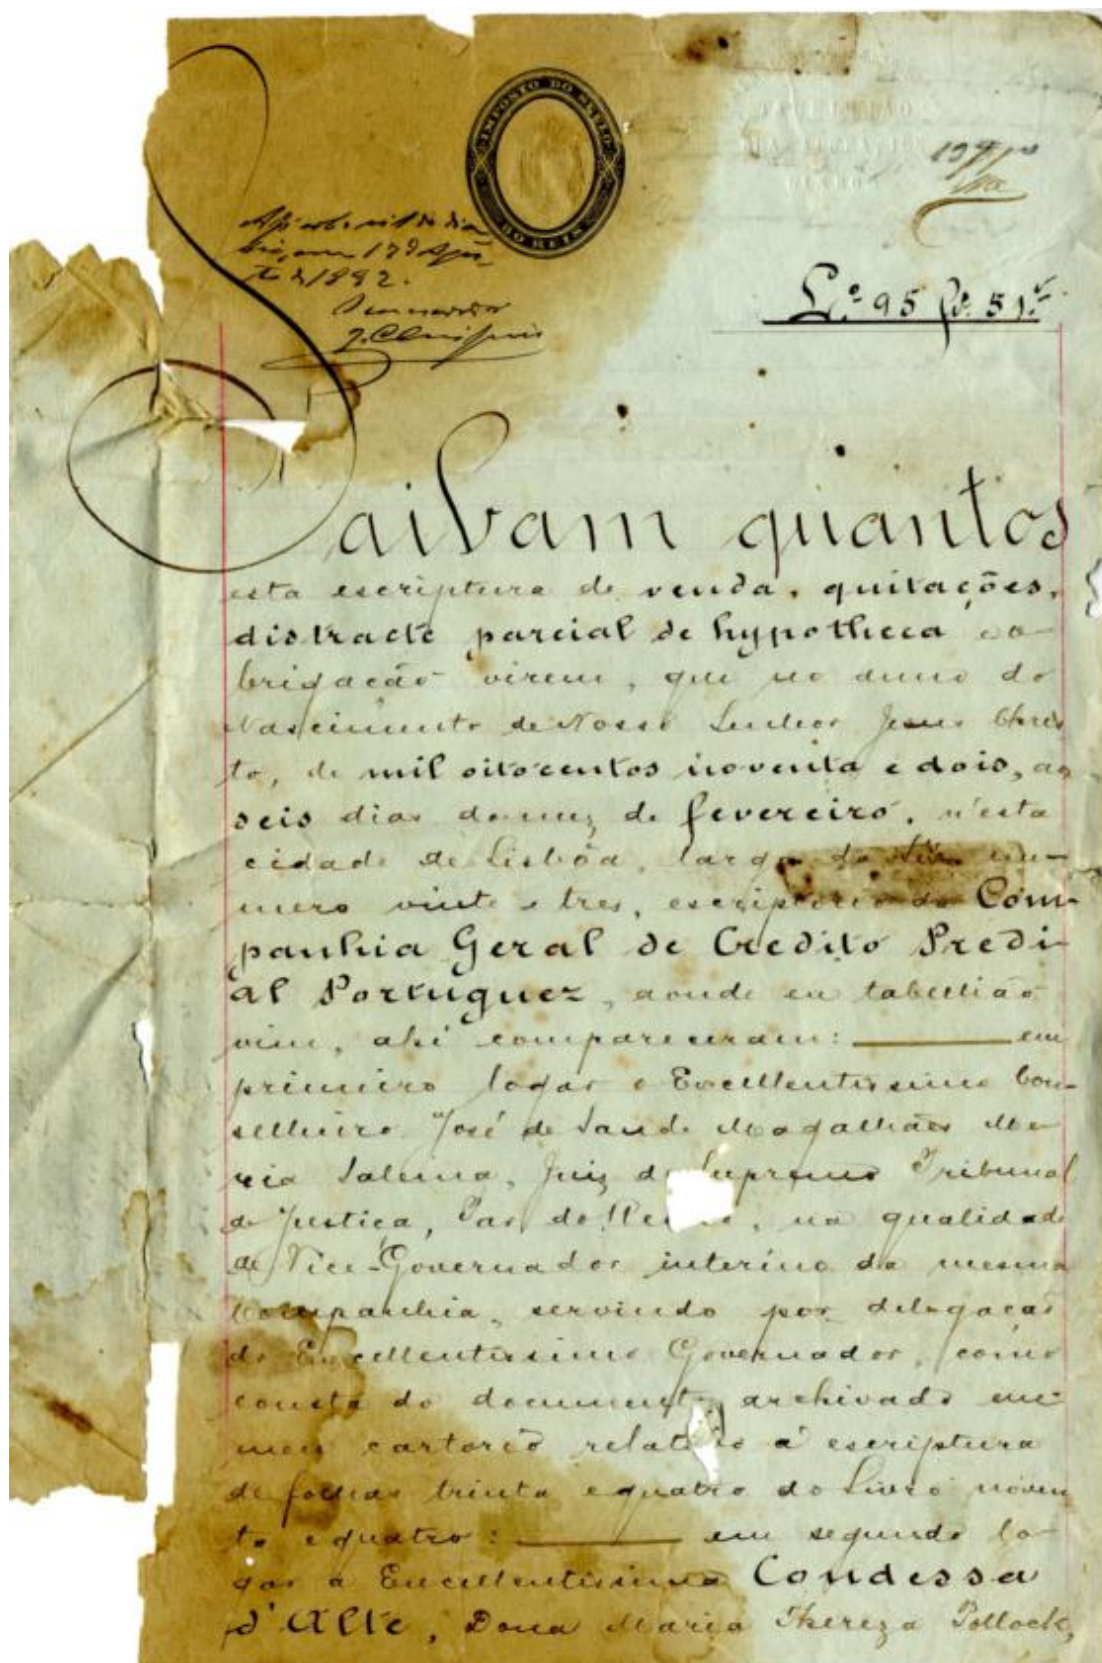 IMPOSTO DO SELLO
80 REIS
de 1892.
L.º 95 f. 51 v.
Saibam quantos
esta escriptura de venda, quitações,
distracte parcial de hypotheca e o-
brigação virem, que no anno do
Nascimento de Nosso Senhor Jesus Chris
to, de mil oitocentos noventa e dois, aos
seis dias do mez de fevereiro, n'esta
cidade de Lisbôa, largo de nu-
mero vinte e tres, escriptorio da Com-
panhia Geral de Credito Predi-
al Portuguez, aonde eu tabellião
vim, ahi compareceram: em
primeiro logar o Excellentissimo Con-
selheiro José de Sande Magalhães Me-
xia Salema, Juiz do Supremo Tribunal
de Justiça, Par do Reino, na qualidade
de Vice-Governador interino da mesma
Companhia, servindo por delegação
do Excellentissimo Governador, como
consta do documento archivado em
meu cartorio relativo á escriptura
de folhas trinta e quatro do Livro noven
ta e quatro: em segundo lo-
gar a Excellentissima Condessa
d'Alte, Dona Maria Thereza Pollock,